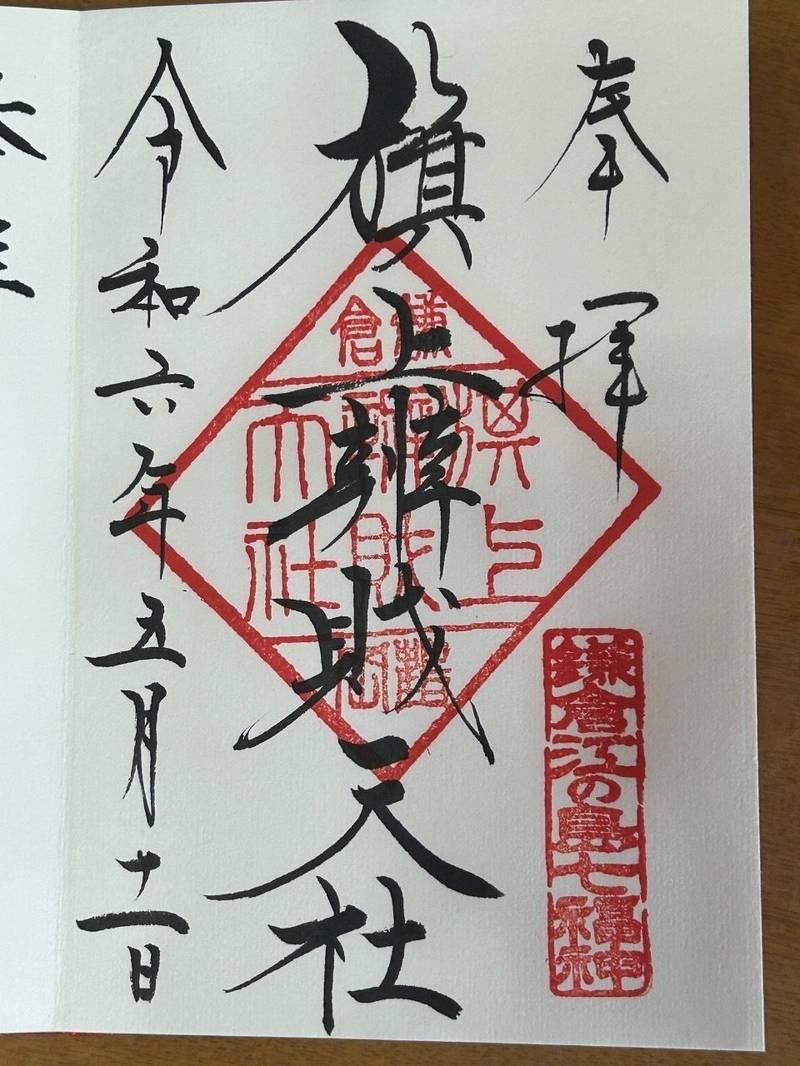 奉拝
鎌倉江の島七福神
旗上辨財天社
鎌倉
旗上
辨財
天社
令和六年五月十一日